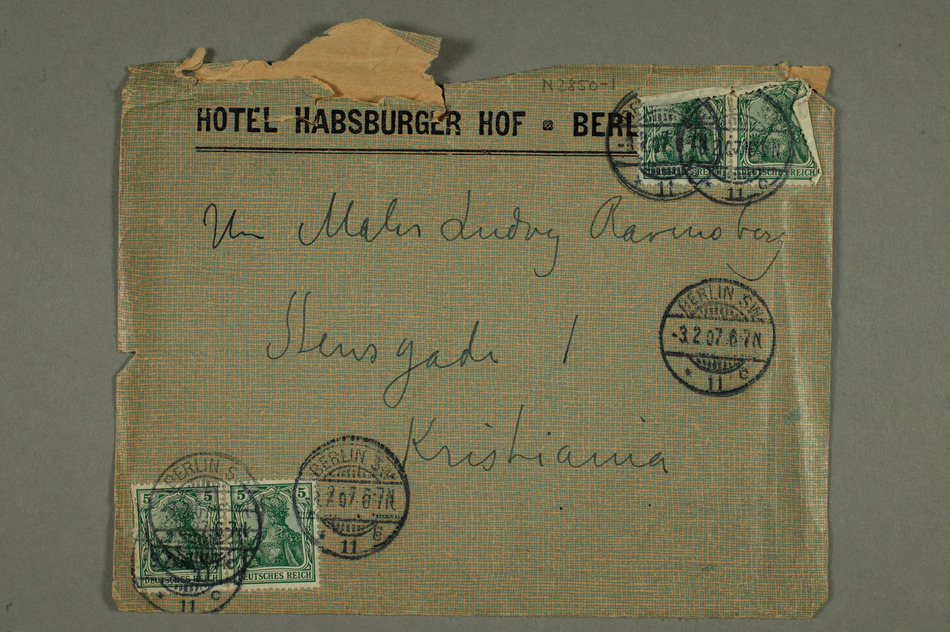 N2850-1
HOTEL HABSBURGER HOF BERL
DEUTSCHES REICH DEUTSCHES REICH
11 11 c
Maler Ludvig Ravensberg
BERLIN S.W.
-3.2.07.6-7N.
* 11 c
1
Kristiania
BERLIN S.W.
.2.07.6-7N.
* 11 c
BERLIN S
5 5 5 5
DEUTSCHES REICH DEUTSCHES REICH
* 11 c